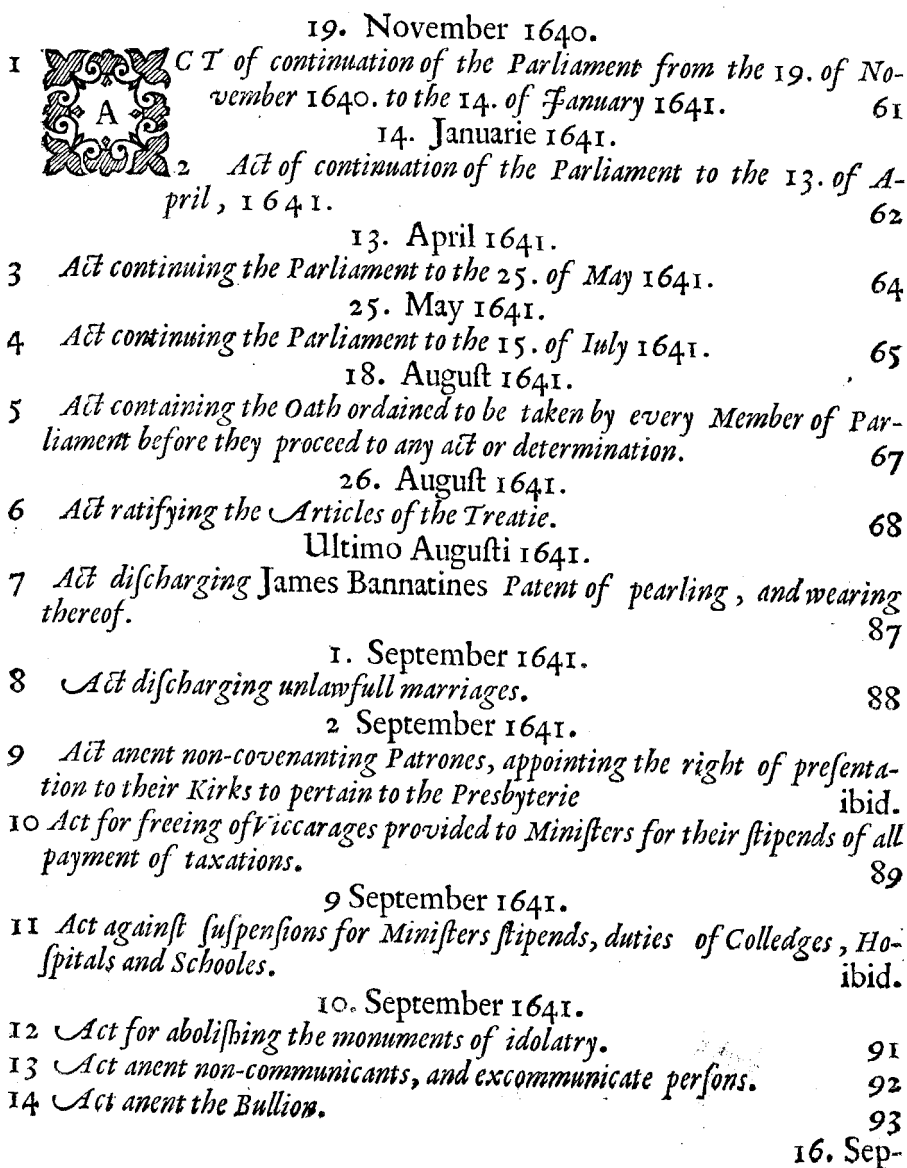 19. November 1640.
1 ACT of continuation of the Parliament from the 19. of No-
vember 1640. to the 14. of January 1641. 61
14. Januarie 1641.
2 Act of continuation of the Parliament to the 13. of A-
pril, 1641. 62
13. April 1641.
3 Act continuing the Parliament to the 25. of May 1641. 64
25. May 1641.
4 Act continuing the Parliament to the 15. of Iuly 1641. 65
18. Auguſt 1641.
5 Act containing the Oath ordained to be taken by every Member of Par-
liament before they proceed to any act or determination. 67
26. Auguſt 1641.
6 Act ratifying the Articles of the Treatie. 68
Ultimo Auguſti 1641.
7 Act diſcharging James Bannatines Patent of pearling, and wearing
thereof. 87
1. September 1641.
8 Act diſcharging unlawfull marriages. 88
2 September 1641.
9 Act anent non-covenanting Patrones, appointing the right of preſenta-
tion to their Kirks to pertain to the Presbyterie ibid.
10 Act for freeing of Viccarages provided to Miniſters for their ſtipends of all
payment of taxations. 89
9 September 1641.
11 Act againſt ſuſpenſions for Miniſters ſtipends, duties of Colledges, Ho-
ſpitals and Schooles. ibid.
10. September 1641.
12 Act for aboliſhing the monuments of idolatry. 91
13 Act anent non-communicants, and excommunicate perſons. 92
14 Act anent the Bullion. 93
16. Sep-